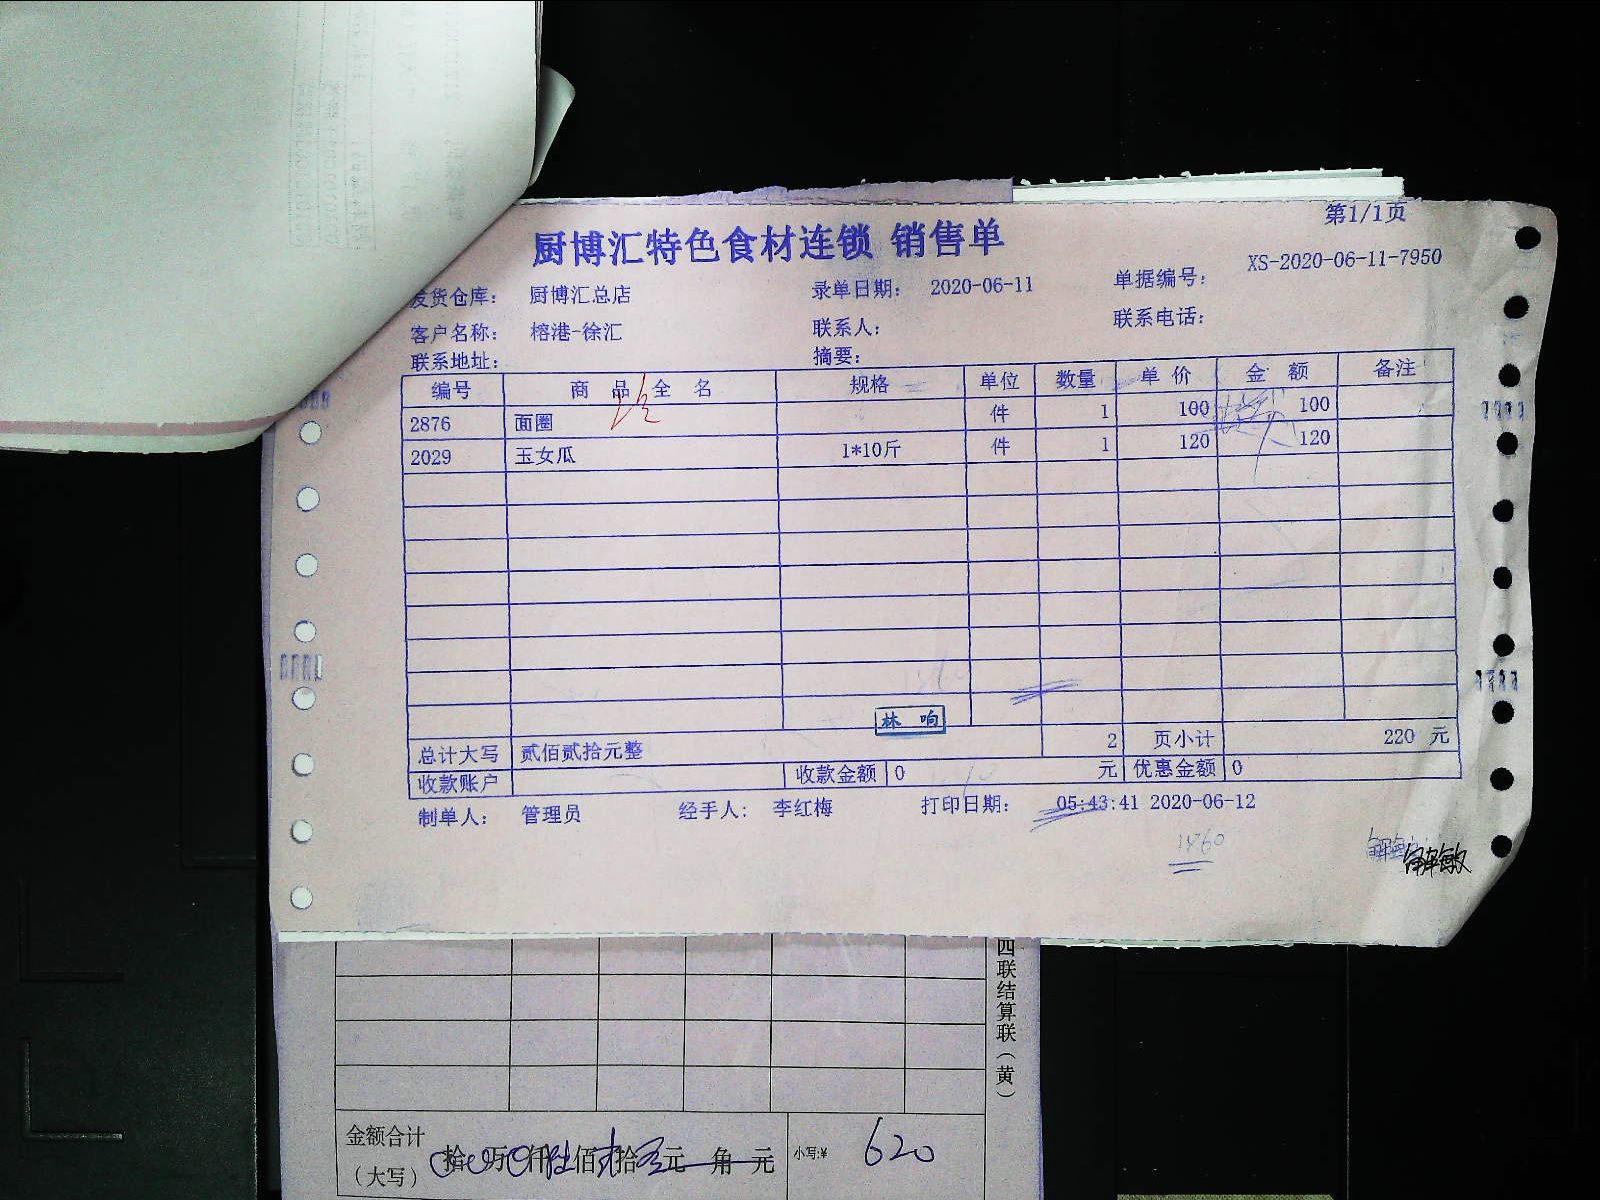 第1/1页
厨博汇特色食材连锁 销售单
发货仓库: 厨博汇总店 录单日期: 2020-06-11 单据编号: XS-2020-06-11-7950
客户名称: 榕港-徐汇 联系人: 联系电话:
联系地址: 摘要:
编号 商品全名 规格 单位 数量 单价 金额 备注
2876 面圈 件 1 100 100
2029 玉女瓜 1*10斤 件 1 120 120
林响
总计大写 贰佰贰拾元整 2 页小计 220 元
收款账户 收款金额 0 元 优惠金额 0
制单人: 管理员 经手人: 李红梅 打印日期: 05:43:41 2020-06-12
1860
解敏
四联结算联(黄)
金额合计
(大写) 拾 万 仟 佰 拾 元 角 元 小写:¥ 620